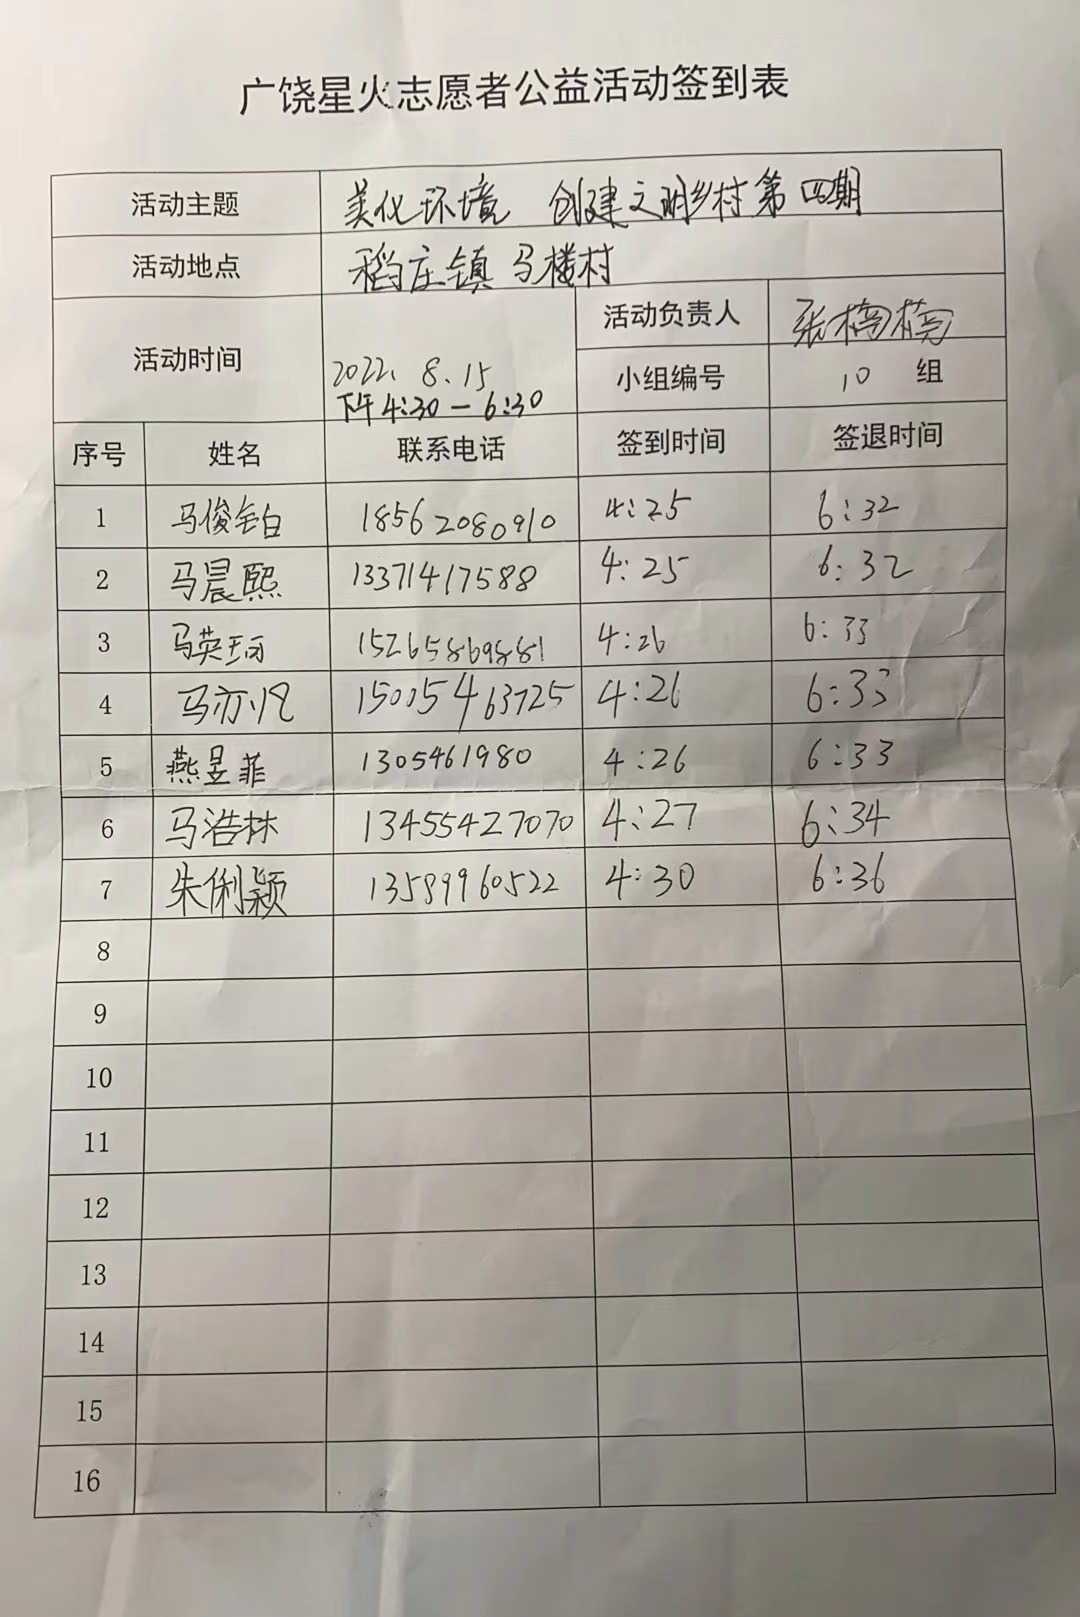 广饶星火志愿者公益活动签到表
活动主题 美化环境 创建文明乡村第四期
活动地点 稻庄镇马楼村
活动时间 2022.8.15 下午4:30-6:30
活动负责人 张楠楠
小组编号 10 组
序号 姓名 联系电话 签到时间 签退时间
1 马俊铂 18562080910 4:25 6:32
2 马晨熙 13371417588 4:25 6:32
3 马英珂 15265869881 4:26 6:33
4 马亦凡 15005463725 4:26 6:33
5 燕昱菲 1305461980 4:26 6:33
6 马浩林 13455427070 4:27 6:34
7 朱俐颖 13589960522 4:30 6:36
8
9
10
11
12
13
14
15
16